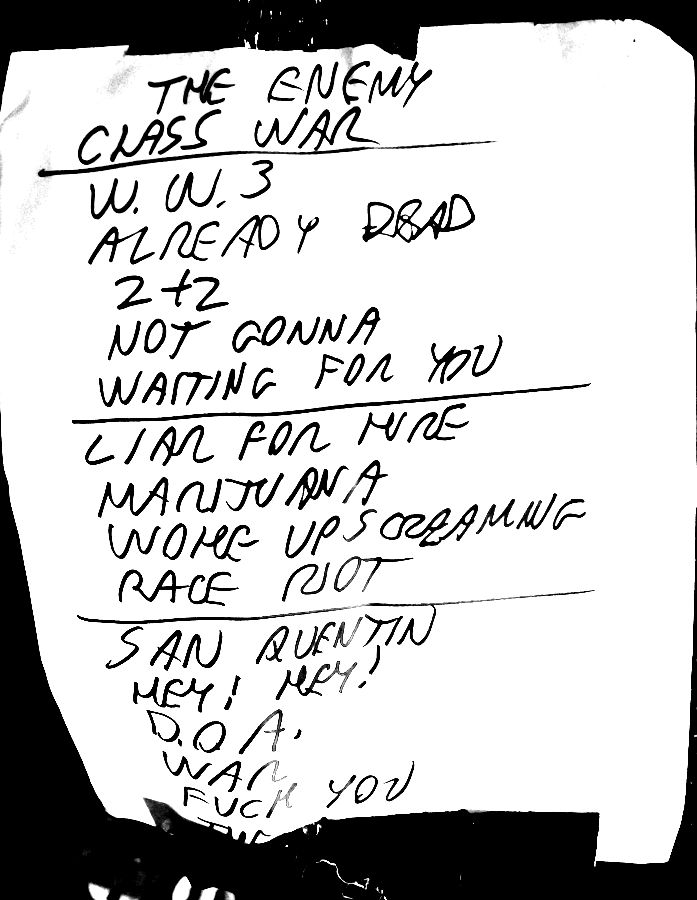 THE ENEMY
CLASS WAR
W.W.3
ALREADY DEAD
2+2
NOT GONNA
WAITING FOR YOU
LIAR FOR HIRE
MARIJUANA
WOKE UP SCREAMING
RACE RIOT
SAN QUENTIN
HEY! HEY!
D.O.A.
WAR
FUCK YOU
THE